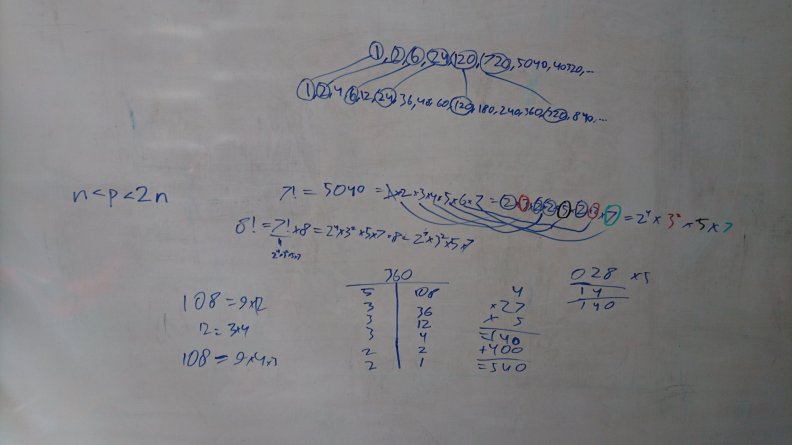 1, 2, 6, 24, 120, 720, 5040, 40320, ...
1, 2, 4, 6, 12, 24, 36, 48, 60, 120, 180, 240, 360, 720, 840, ...
n < p < 2n
7! = 5040 = 1×2×3×4×5×6×7 = 2×3×2×2×5×2×3×7 = 2⁴ × 3² × 5 × 7
8! = 7! × 8 = 2⁴×3²×5×7×8 = 2⁷×3²×5×7
2⁴×3²×5×7
108 = 9×12
12 = 3×4
108 = 9×4×3
360
5 | 108
3 | 36
3 | 12
3 | 4
2 | 2
2 | 1
4
×27
× 5
=140
+400
=540
028 ×5
14
140